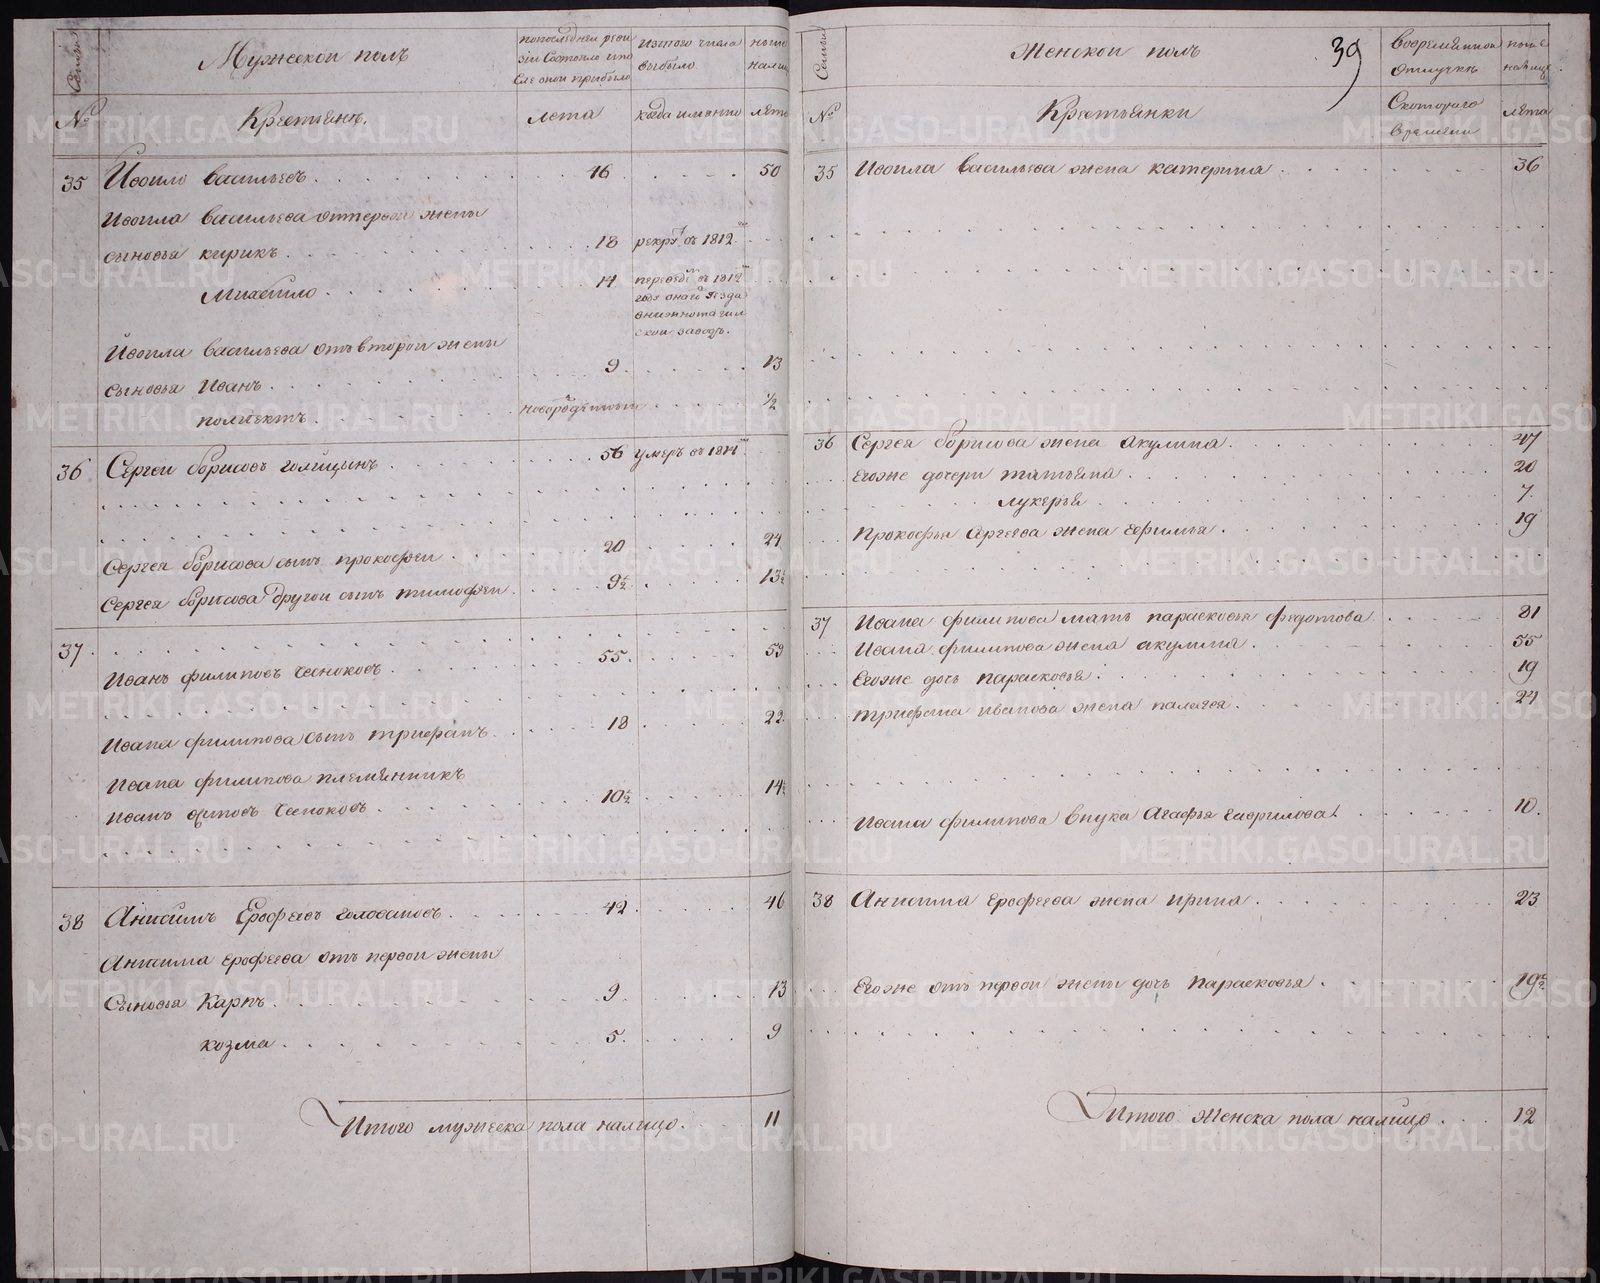 Семьи
Мужескои полъ
попоследнеи реви
зіи Состояло ипо
сле онои прибыло
Изтого числа
выбыло
ныне
налицо
№
Крестьянъ.
лета
когда имянно
лета
35 Иовило Васильевъ 46 50
Васильева отпервои жены
сыновья кирикъ 18 рекрут въ 1812м
Михаило 14 переведен въ 1812м
годе онаго уезда
внижнотагил
скои заводъ.
Васильева отъ второи жены
сыновья Иванъ 9 13
полиектъ новорожденныи ½
36 Сергеи борисовъ голицынъ 56 умеръ въ 1811м
Сергея борисова сынъ прокофеи 20 24
Сергея борисова другои сынъ тимофеи 9½ 13½
37
Иванъ филиповъ Чесноковъ 55 59
Ивана филипова сынъ трифанъ 18 22
Ивана филипова племянникъ
Иванъ Чесноковъ 10½ 14½
38 Анисимъ Ерофеевъ головановъ 42 46
Анисима ерофеева отъ первои жены
Сыновья Карпъ 9 13
козма 5 9
Итого мужеска пола налицо 11
39
Семьи
Женскои полъ
Вовременнои
отлучке
ныне
налице
№
Крестьянки
Скотораго
времени
лета
35 Васильева жена катерина 36
36 Сергея борисова жена акулина 47
Егоже дочери татьяна 20
лукерья 7
Прокофья сергеева жена ефимья 19
37 Ивана филипова мать парасковья федотова 81
Ивана филипова жена акулина 55
Егоже дочь парасковья 19
трифона иванова жена палагея 24
Ивана филипова внука Агафья гаврилова 10.
38 Анисима ерофеева жена ирина 23
Егоже отъ первои жены дочь парасковья 19½
Итого женска пола налицо 12
METRIKI.GASO-URAL.RU